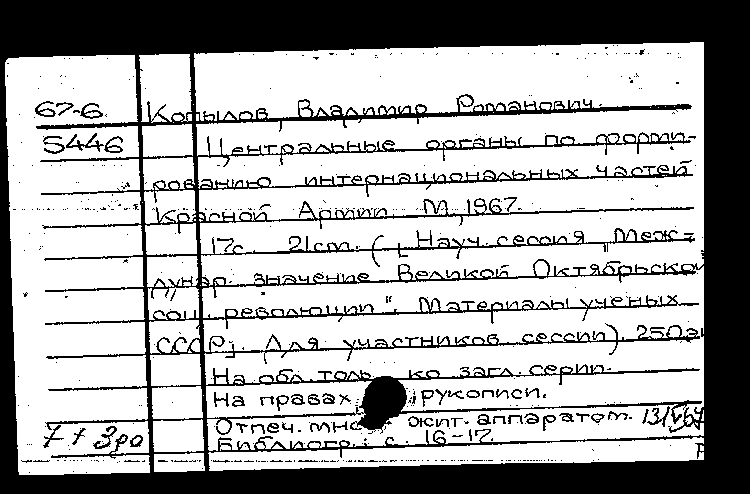 67-6 Копылов, Владимир Романович.
5446 Центральные органы по форми-
рованию интернациональных частей
Красной Армии. М., 1967.
17с. 21см. ([Науч. сессия "Меж-
дунар. значение Великой Октябрьской
соц. революции". Материалы ученых
СССР]. Для участников сессии). 250э
На обл. только загл. серии.
На правах рукописи.
Отпеч. множит. аппаратом.
Библиогр.: с. 16-17.